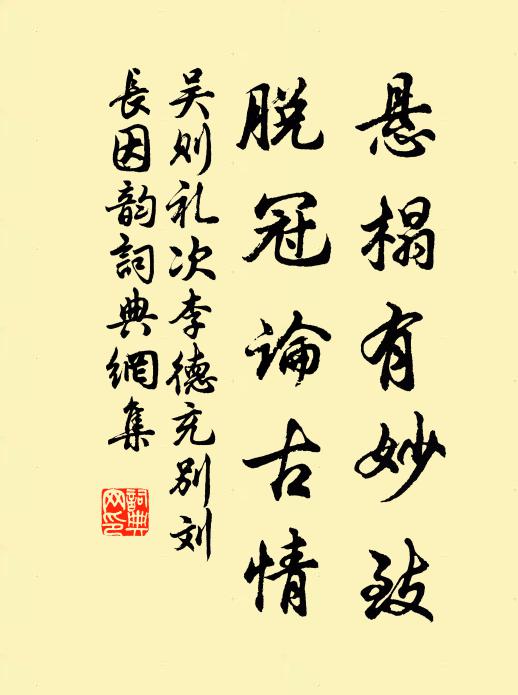 悬榻有妙致
脱冠論古情
吴则礼次李德充别刘
長因韵詞典網集
詞典网印